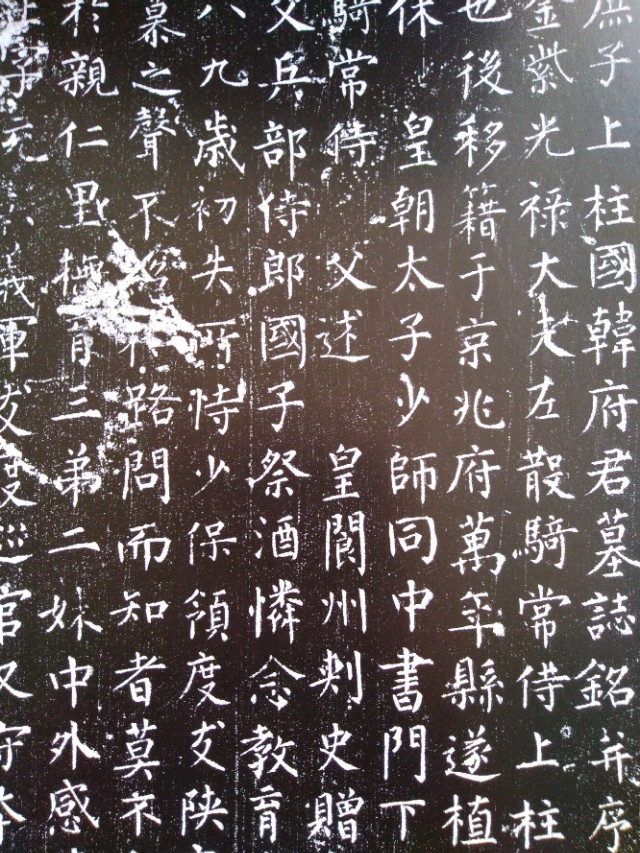 庶子上柱國韓府君墓誌銘并序
金紫光祿大夫左散騎常侍上柱
也後移籍于京兆府萬年縣遂植
保 皇朝太子少師同中書門下
騎常侍 父述 皇閬州刺史贈
父兵部侍郎國子祭酒憐念教育
八九歲初失所恃少保領度支陝
慕之聲不 路問而知者莫不
於親仁里 育三弟二妹中外感
子元 義軍 支 巡官又守